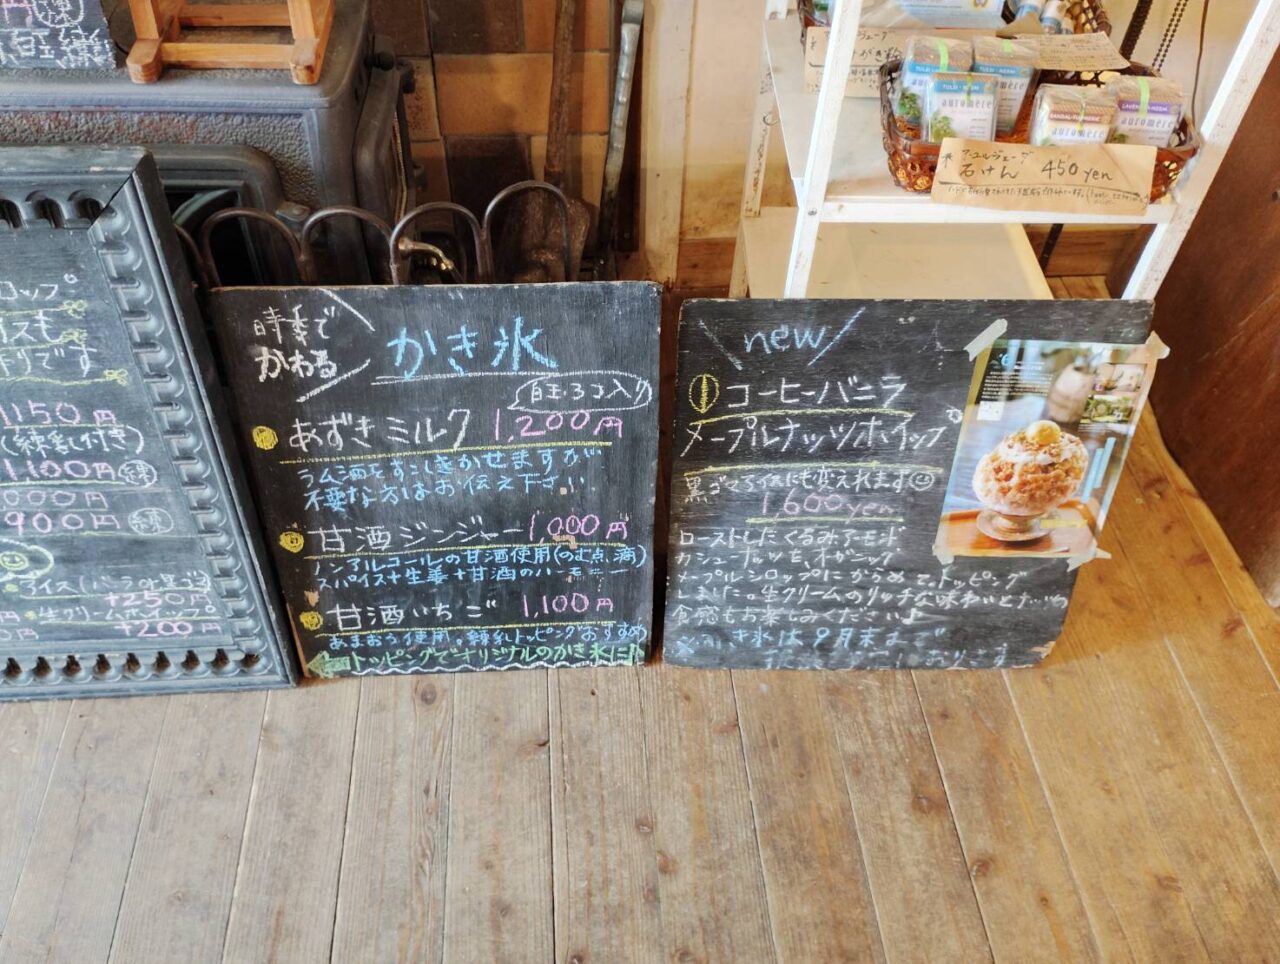 ロップ
スも
キリです
1150円
(練乳付き)
1,100円 練
000円
900円 練
アイス(バラor黒道
+250円
生クリームホイップ
+200円
時季で
かわる
かき氷
白玉3コ入り
あずきミルク 1,200円
ラム酒をすこし
不要な方はお伝え下さい.
甘酒ジンジャー 1,000円
ノンアルコールの甘酒使用(のむ点滴)
スパイス+生姜+甘酒のハーモニー
甘酒いちご 1,100円
あまおう使用。練乳トッピングおすすめ
トッピングでオリジナルのかき氷に♪
new
コーヒーバニラ
メープルナッツホイップ
黒ごま
に変えれます
1,600yen
ローストしたくるみアーモンド
カシューナッツを、オーガニック
メープルシロップにからめて、トッピング
しました。生クリームのリッチな味わいとナッツの
食感もお楽しみください♪
かき氷は9月末まで
TULSI・NEEM
auromère
TULSI・NEEM
auromère
SANDAL-TURMERIC
auromère
LAVENDER-NEEM
auromère
アーユルヴェーダ
石けん 450yen